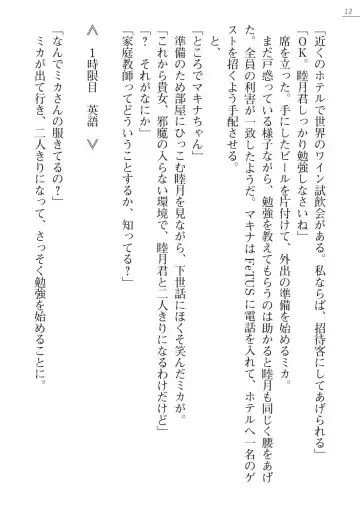 12
「近くのホテルで世界のワイン試飲会がある。私ならば、招待客にしてあげられる」
「OK。睦月君しっかり勉強しなさいね」
席を立った。手にしたビールを片付けて、外出の準備を始めるミカ。
まだ戸惑っている様子ながら、勉強を教えてもらうのは助かると睦月も同じく腰をあげ
た。全員の利害が一致したようだ。マキナはFeTUSに電話を入れて、ホテルへ一名のゲ
ストを招くよう手配させる。
と、
「ところでマキナちゃん」
準備のため部屋にひっこむ睦月を見ながら、下世話にほくそ笑んだミカが。
「これから貴女、邪魔の入らない環境で、睦月君と二人きりになるわけだけど」
「? それがなにか」
「家庭教師ってどういうことするか、知ってる?」
≪ 1時限目 英語 ≫
「なんでミカさんの服きてるの?」
ミカが出て行き、二人きりになって、さっそく勉強を始めることに。